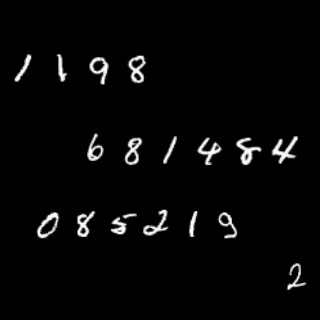 1198
681484
085219
2